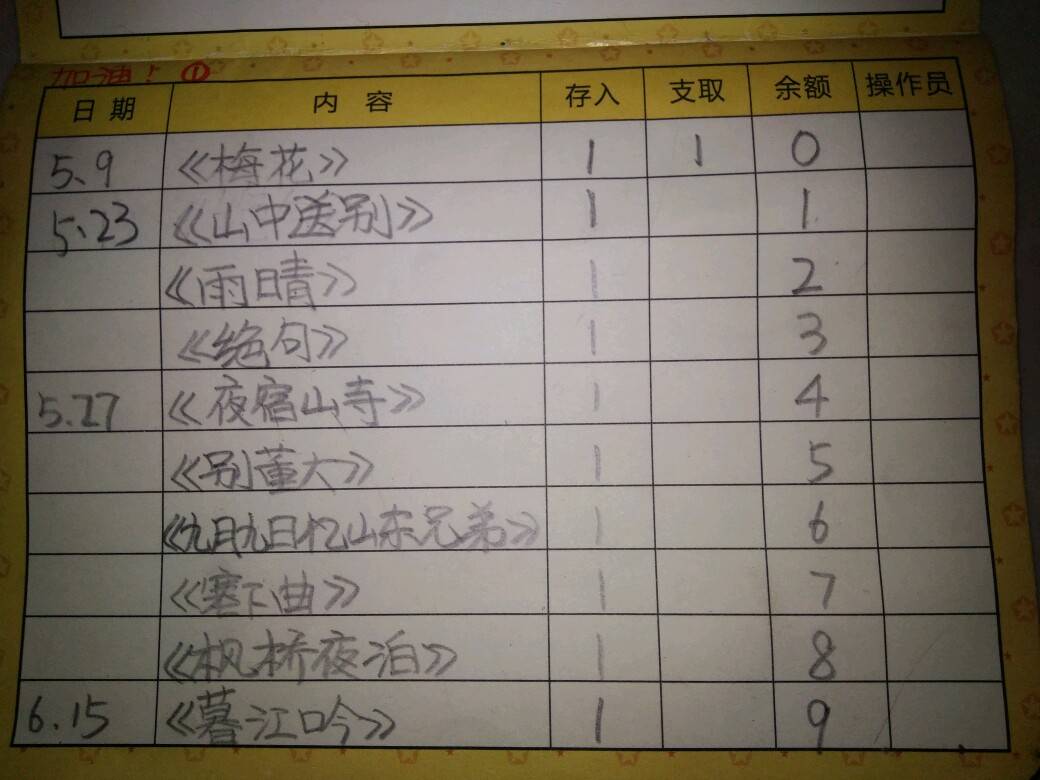 加油! ①
日期 内容 存入 支取 余额 操作员
5.9 《梅花》 1 1 0
5.23 《山中送别》 1 1
《雨晴》 1 2
《绝句》 1 3
5.27 《夜宿山寺》 1 4
《别董大》 1 5
《九月九日忆山东兄弟》 1 6
《塞下曲》 1 7
《枫桥夜泊》 1 8
6.15 《暮江吟》 1 9